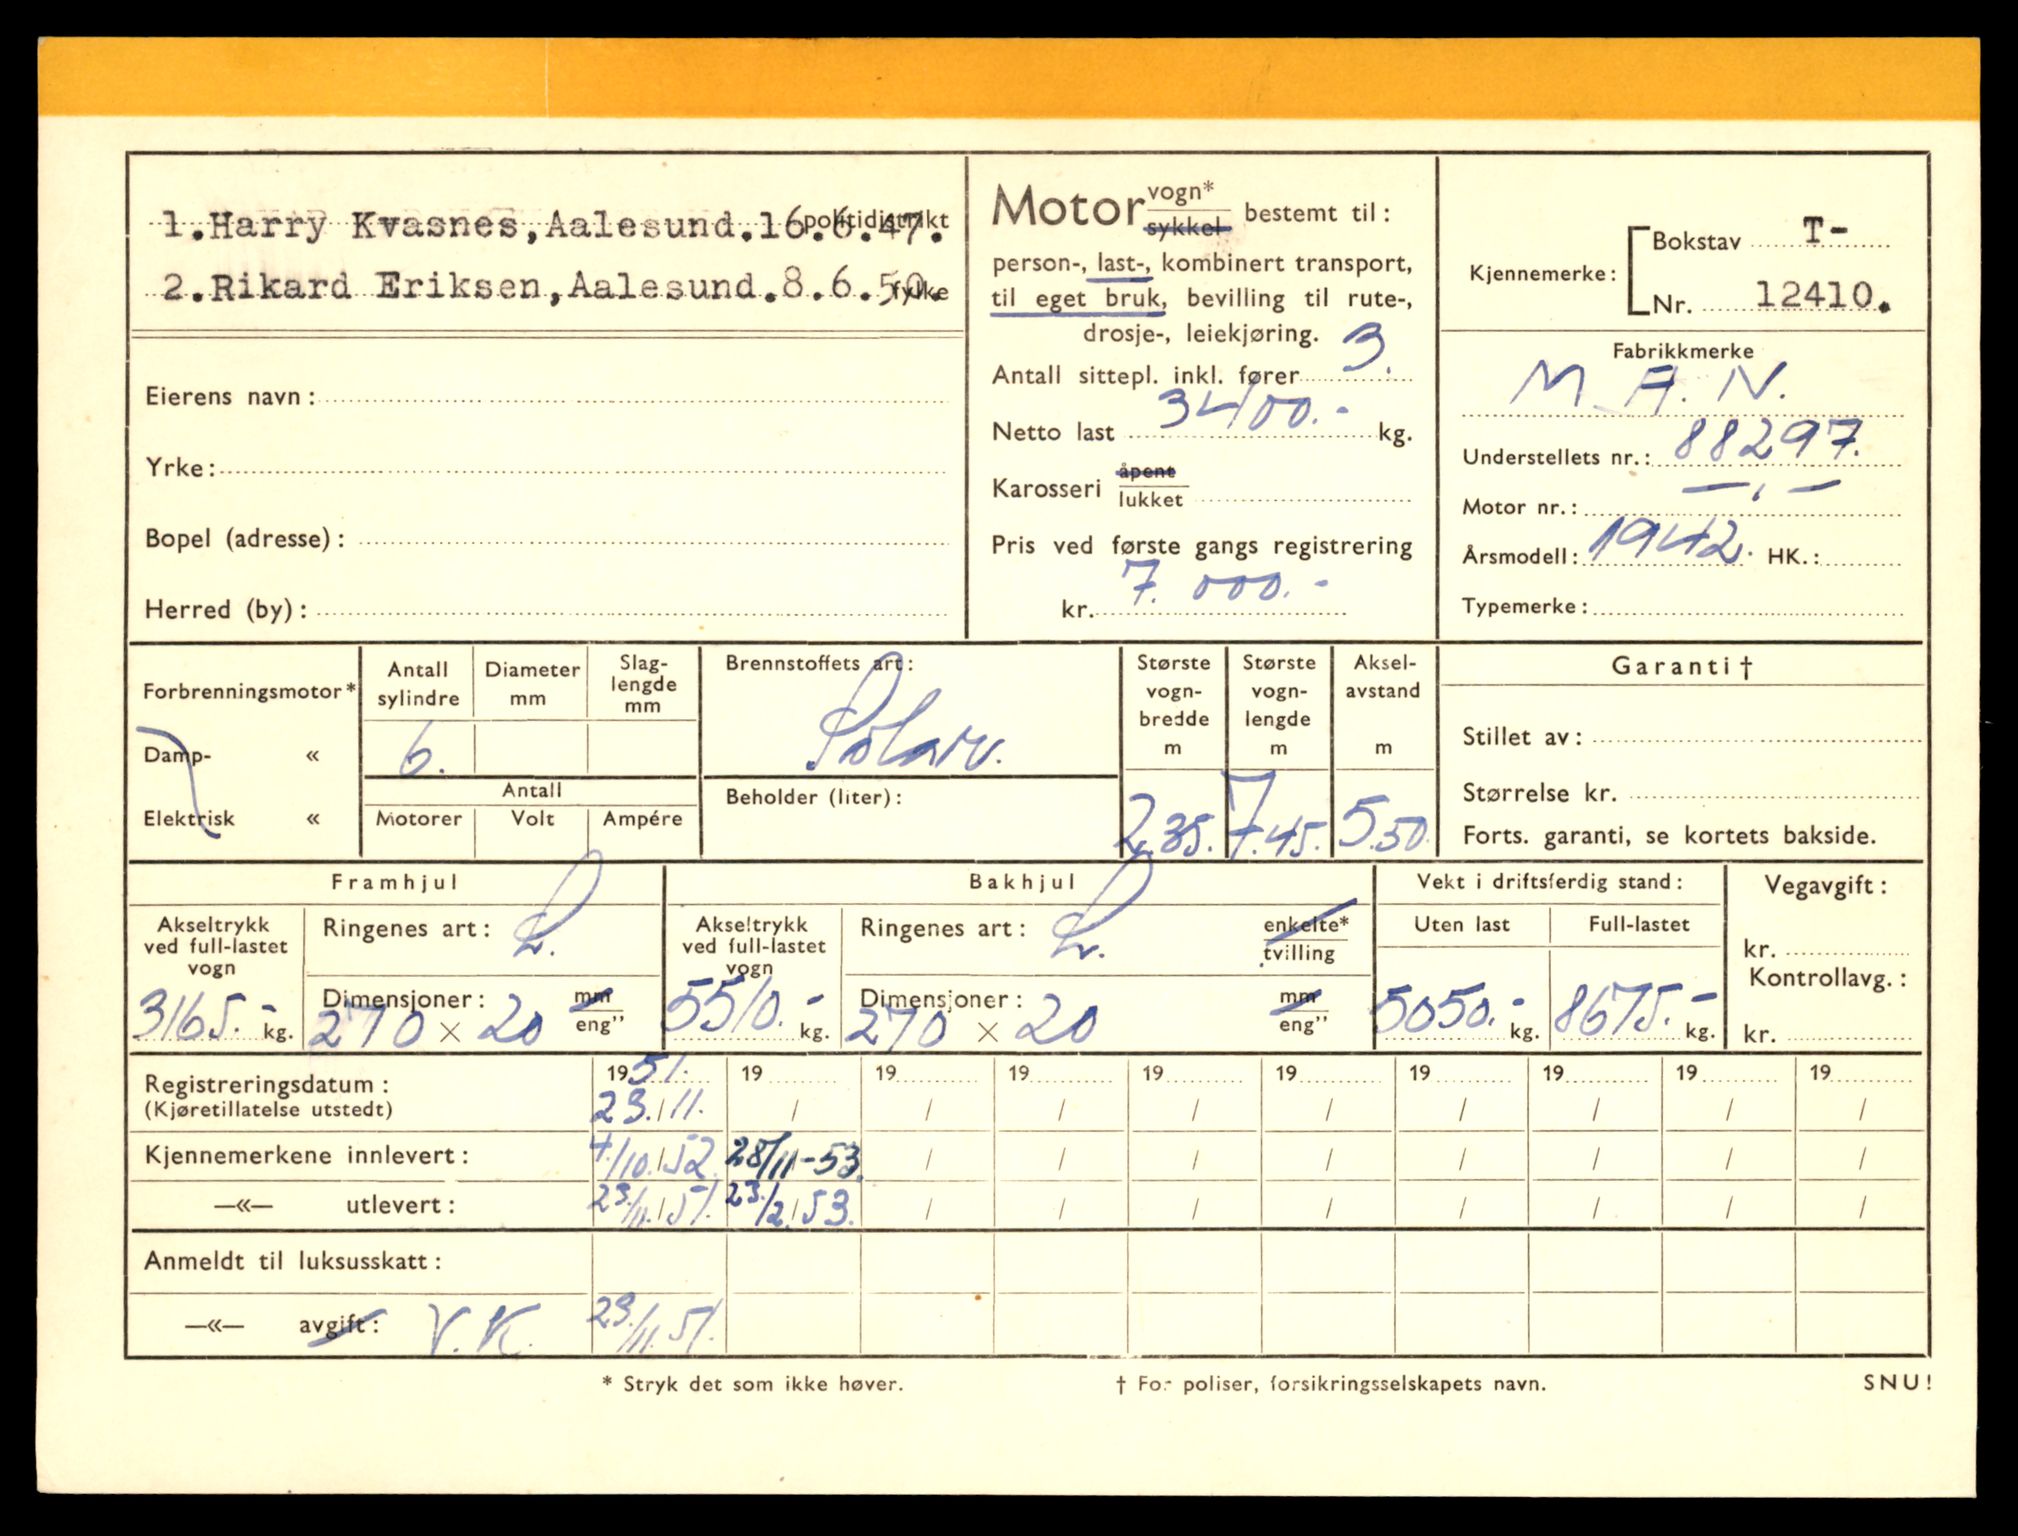 1.Harry Kvasnes,Aalesund.16.6.47. politidistrikt
2.Rikard Eriksen,Aalesund.8.6.50. fylke
Eierens navn:
Yrke:
Bopel (adresse):
Herred (by):
Motor vogn* sykkel bestemt til:
person-, last-, kombinert transport,
til eget bruk, bevilling til rute-,
drosje-, leiekjøring.
Antall sittepl. inkl. fører 3.
Netto last 3400.- kg.
Karosseri åpent lukket
Pris ved første gangs registrering
kr. 7.000.-
Kjennemerke: Bokstav T-
Nr. 12410.
Fabrikkmerke
M.A.N.
Understellets nr.: 88297.
Motor nr.: — , —
Årsmodell: 1942. HK.:
Typemerke:
Forbrenningsmotor*
Damp- «
Elektrisk «
Antall sylindre
Diameter mm
Slag-lengde mm
6.
Antall
Motorer Volt Ampére
Brennstoffets art:
Solar.
Beholder (liter):
Største vogn-bredde m
Største vogn-lengde m
Aksel-avstand m
2,35. 7.45. 5.50.
Garanti †
Stillet av:
Størrelse kr.
Forts. garanti, se kortets bakside.
Framhjul
Akseltrykk ved full-lastet vogn
3165.- kg.
Ringenes art: L.
Dimensjoner: mm eng"
270 × 20
Bakhjul
Akseltrykk ved full-lastet vogn
5510.- kg.
Ringenes art: L. enkelte* tvilling
Dimensjoner: mm eng"
270 × 20
Vekt i driftsferdig stand:
Uten last Full-lastet
5050.- kg. 8675.- kg.
Vegavgift:
kr.
Kontrollavg.:
kr.
Registreringsdatum: 1951. 19 19 19 19 19 19 19 19 19
(Kjøretillatelse utstedt) 23./11. / / / / / / / / /
Kjennemerkene innlevert: 4./10./52. 28/11-53. / / / / / / / /
—«— utlevert: 23./11./51. 23./2./53. / / / / / / / /
Anmeldt til luksusskatt:
—«— avgift: V.K. 23./11.51.
* Stryk det som ikke høver. † For poliser, forsikringsselskapets navn. SNU!